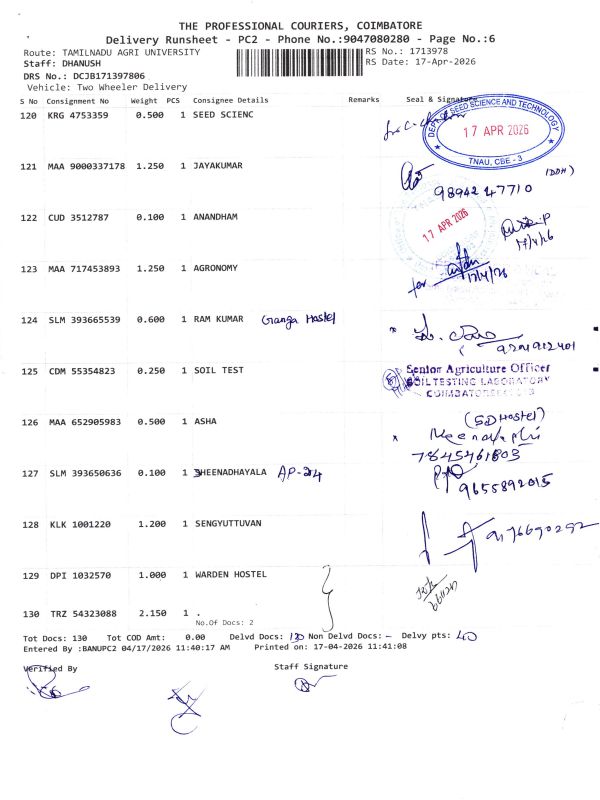 THE PROFESSIONAL COURIERS, COIMBATORE
Delivery Runsheet - PC2 - Phone No.:9047080280 - Page No.:6
Route: TAMILNADU AGRI UNIVERSITY RS No.: 1713978
Staff: DHANUSH RS Date: 17-Apr-2026
DRS No.: DCJB171397806
Vehicle: Two Wheeler Delivery
S No Consignment No Weight PCS Consignee Details Remarks Seal & Signature
120 KRG 4753359 0.500 1 SEED SCIENC
DEPT. OF SEED SCIENCE AND TECHNOLOGY
17 APR 2026
TNAU, CBE - 3
121 MAA 9000337178 1.250 1 JAYAKUMAR
(DDH)
98942 47710
122 CUD 3512787 0.100 1 ANANDHAM
17 APR 2026
17/4/26
123 MAA 717453893 1.250 1 AGRONOMY
for
17/4/26
124 SLM 393665539 0.600 1 RAM KUMAR Ganga Hostel
125 CDM 55354823 0.250 1 SOIL TEST
Senior Agriculture Officer
SOIL TESTING LABORATORY
126 MAA 652905983 0.500 1 ASHA
(SD Hostel)
7845461803
127 SLM 393650636 0.100 1 SHEENADHAYALA
9655892015
128 KLK 1001220 1.200 1 SENGYUTTUVAN
129 DPI 1032570 1.000 1 WARDEN HOSTEL
130 TRZ 54323088 2.150 1 .
No.Of Docs: 2
Tot Docs: 130 Tot COD Amt: 0.00 Delvd Docs: 130 Non Delvd Docs: – Delvy pts: 40
Entered By :BANUPC2 04/17/2026 11:40:17 AM Printed on: 17-04-2026 11:41:08
Verified By Staff Signature